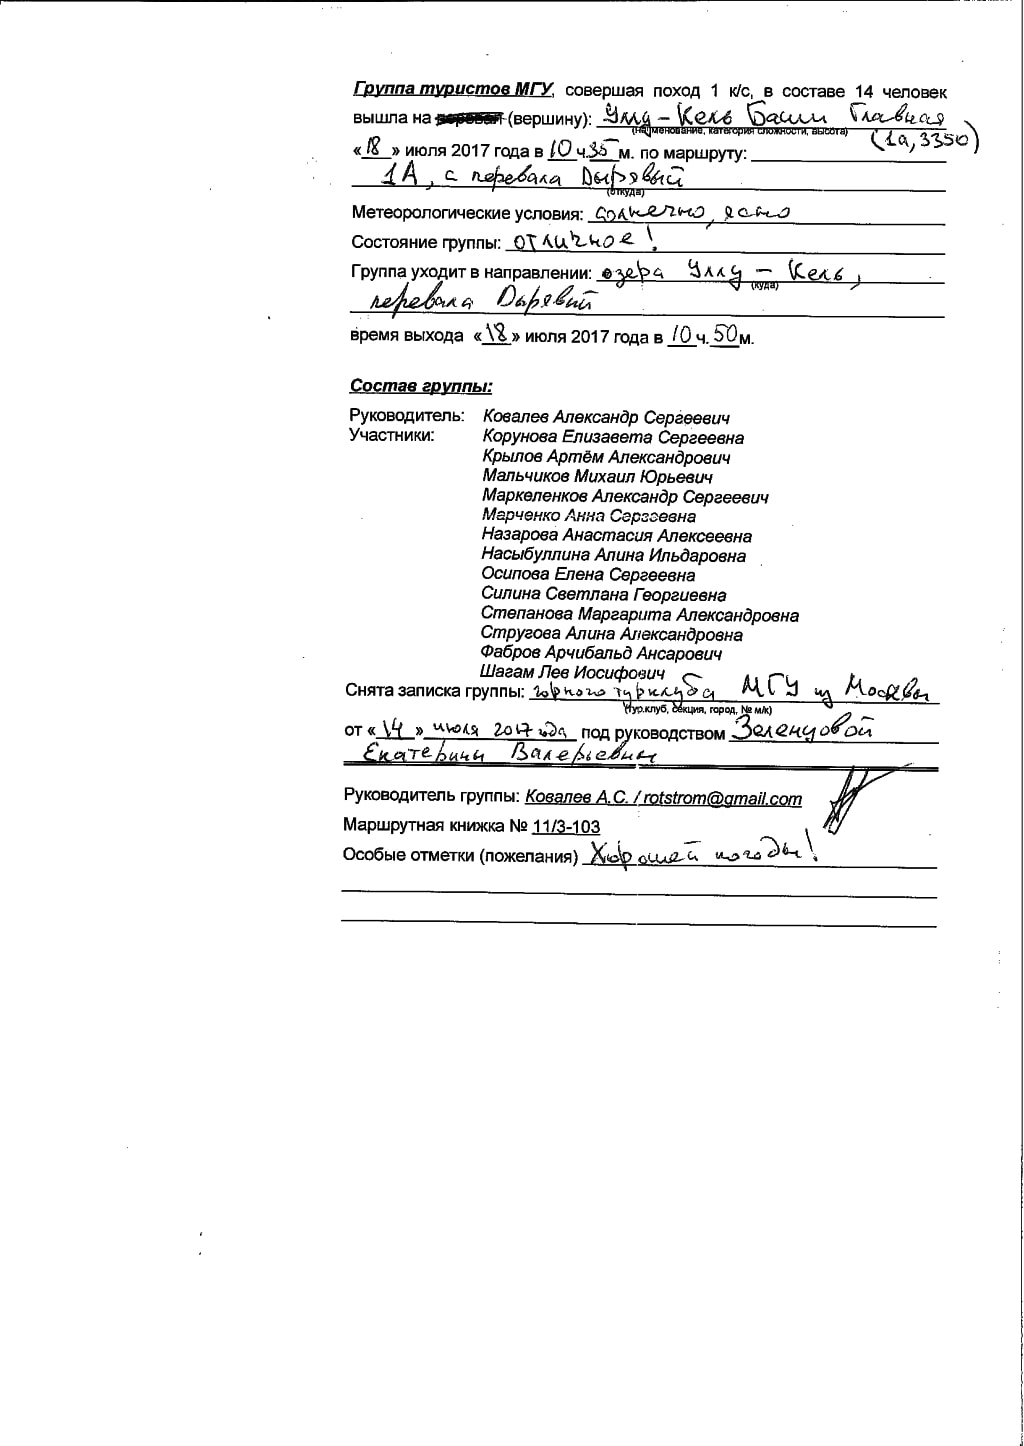 Группа туристов МГУ, совершая поход 1 к/с, в составе 14 человек
вышла на перевал (вершину): Уллу-Кель Баши Главная
(наименование, категория сложности, высота)
(1а, 3350)
«18» июля 2017 года в 10 ч.35 м. по маршруту:
1А, с перевала Дырявый
(откуда)
Метеорологические условия: солнечно, ясно
Состояние группы: отличное!
Группа уходит в направлении: озера Уллу-Кель,
(куда)
перевала Дырявый
время выхода «18» июля 2017 года в 10 ч. 50 м.
Состав группы:
Руководитель: Ковалев Александр Сергеевич
Участники: Корунова Елизавета Сергеевна
Крылов Артём Александрович
Мальчиков Михаил Юрьевич
Маркеленков Александр Сергеевич
Марченко Анна Сергеевна
Назарова Анастасия Алексеевна
Насыбуллина Алина Ильдаровна
Осипова Елена Сергеевна
Силина Светлана Георгиевна
Степанова Маргарита Александровна
Стругова Алина Александровна
Фабров Арчибальд Ансарович
Шагам Лев Иосифович
Снята записка группы: горного турклуба МГУ из Москвы
(тур.клуб, секция, город, № м/к)
от «14» июля 2017 года под руководством Зеленцовой
Екатерины Валерьевны
Руководитель группы: Ковалев А.С. / rotstrom@gmail.com
Маршрутная книжка № 11/3-103
Особые отметки (пожелания) Хорошей погоды!